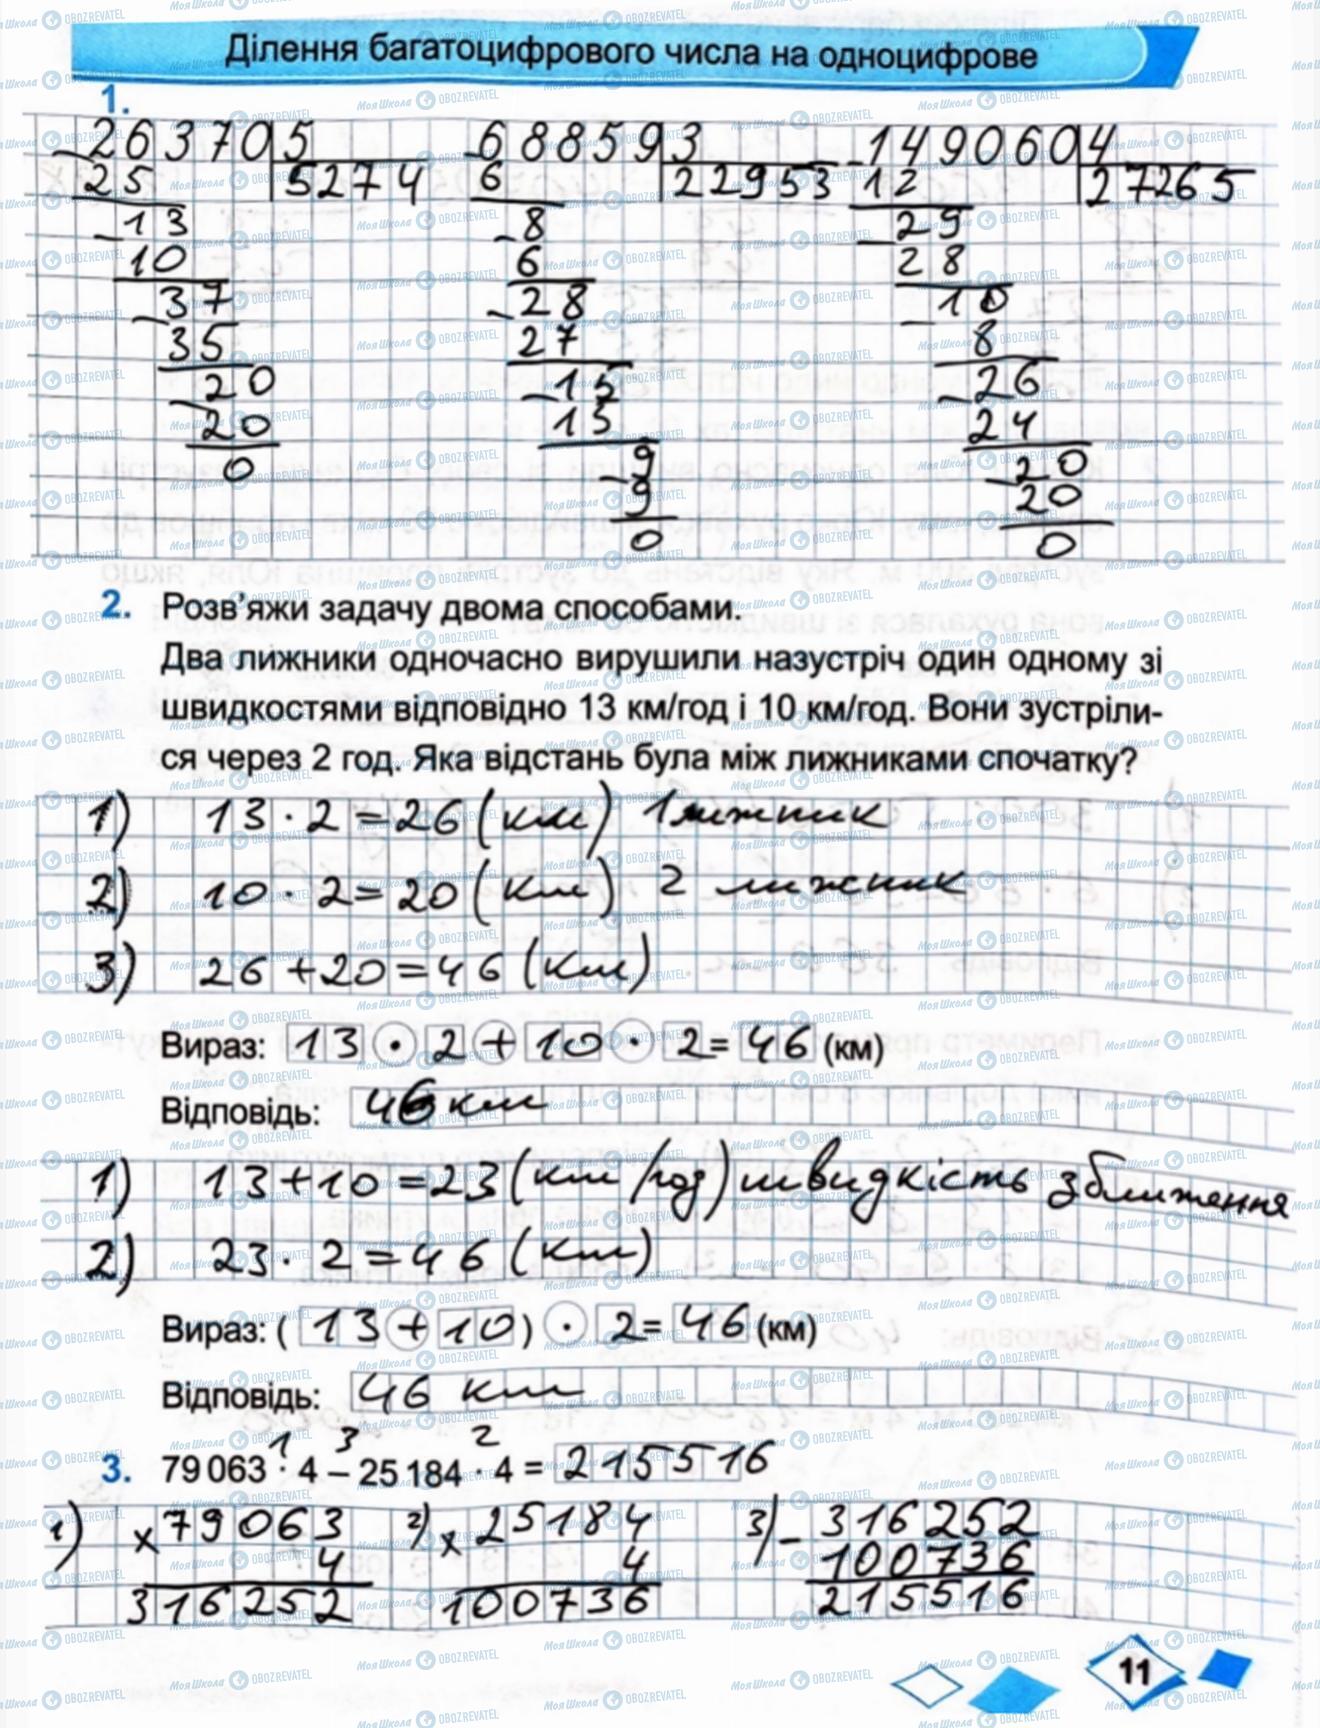 Ділення багатоцифрового числа на одноцифрове
1.
26370 5 68859 3 149060 4
25 5274 6 22953 12 27265
13 8 29
10 6 28
37 28 10
35 27 8
20 15 26
20 15 24
0 9 20
9 20
0 0
2. Розв'яжи задачу двома способами.
Два лижники одночасно вирушили назустріч один одному зі
швидкостями відповідно 13 км/год і 10 км/год. Вони зустріли-
ся через 2 год. Яка відстань була між лижниками спочатку?
1) 13 · 2 = 26 (км) 1 лижник
2) 10 · 2 = 20 (км) 2 лижник
3) 26 + 20 = 46 (км)
Вираз: 13 · 2 + 10 · 2 = 46 (км)
Відповідь: 46 км
1) 13 + 10 = 23 (км/год) швидкість зближення
2) 23 · 2 = 46 (км)
Вираз: ( 13 + 10 ) · 2 = 46 (км)
Відповідь: 46 км
1 3 2
3. 79 063 · 4 – 25 184 · 4 = 215516
1) × 79063 2) × 25184 3) - 316252
4 4 100736
316252 100736 215516
11